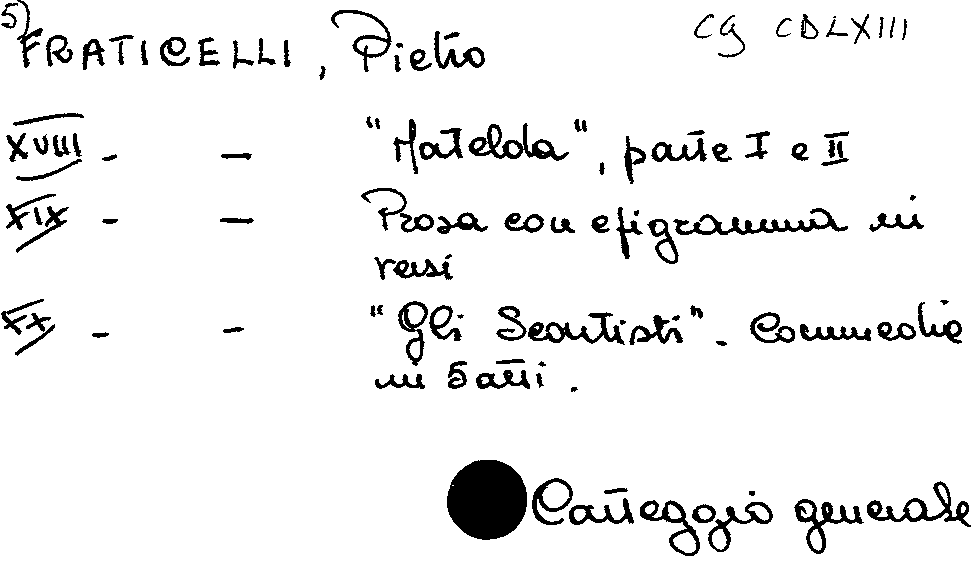 5)
FRATICELLI, Pietro CG CDLXIII
XVIII - - "Matelda", parte I e II
XIX - - Prosa con epigramma in
versi
XX - - "Gli Scontisti". Commedie
in 5 atti.
Carteggio generale